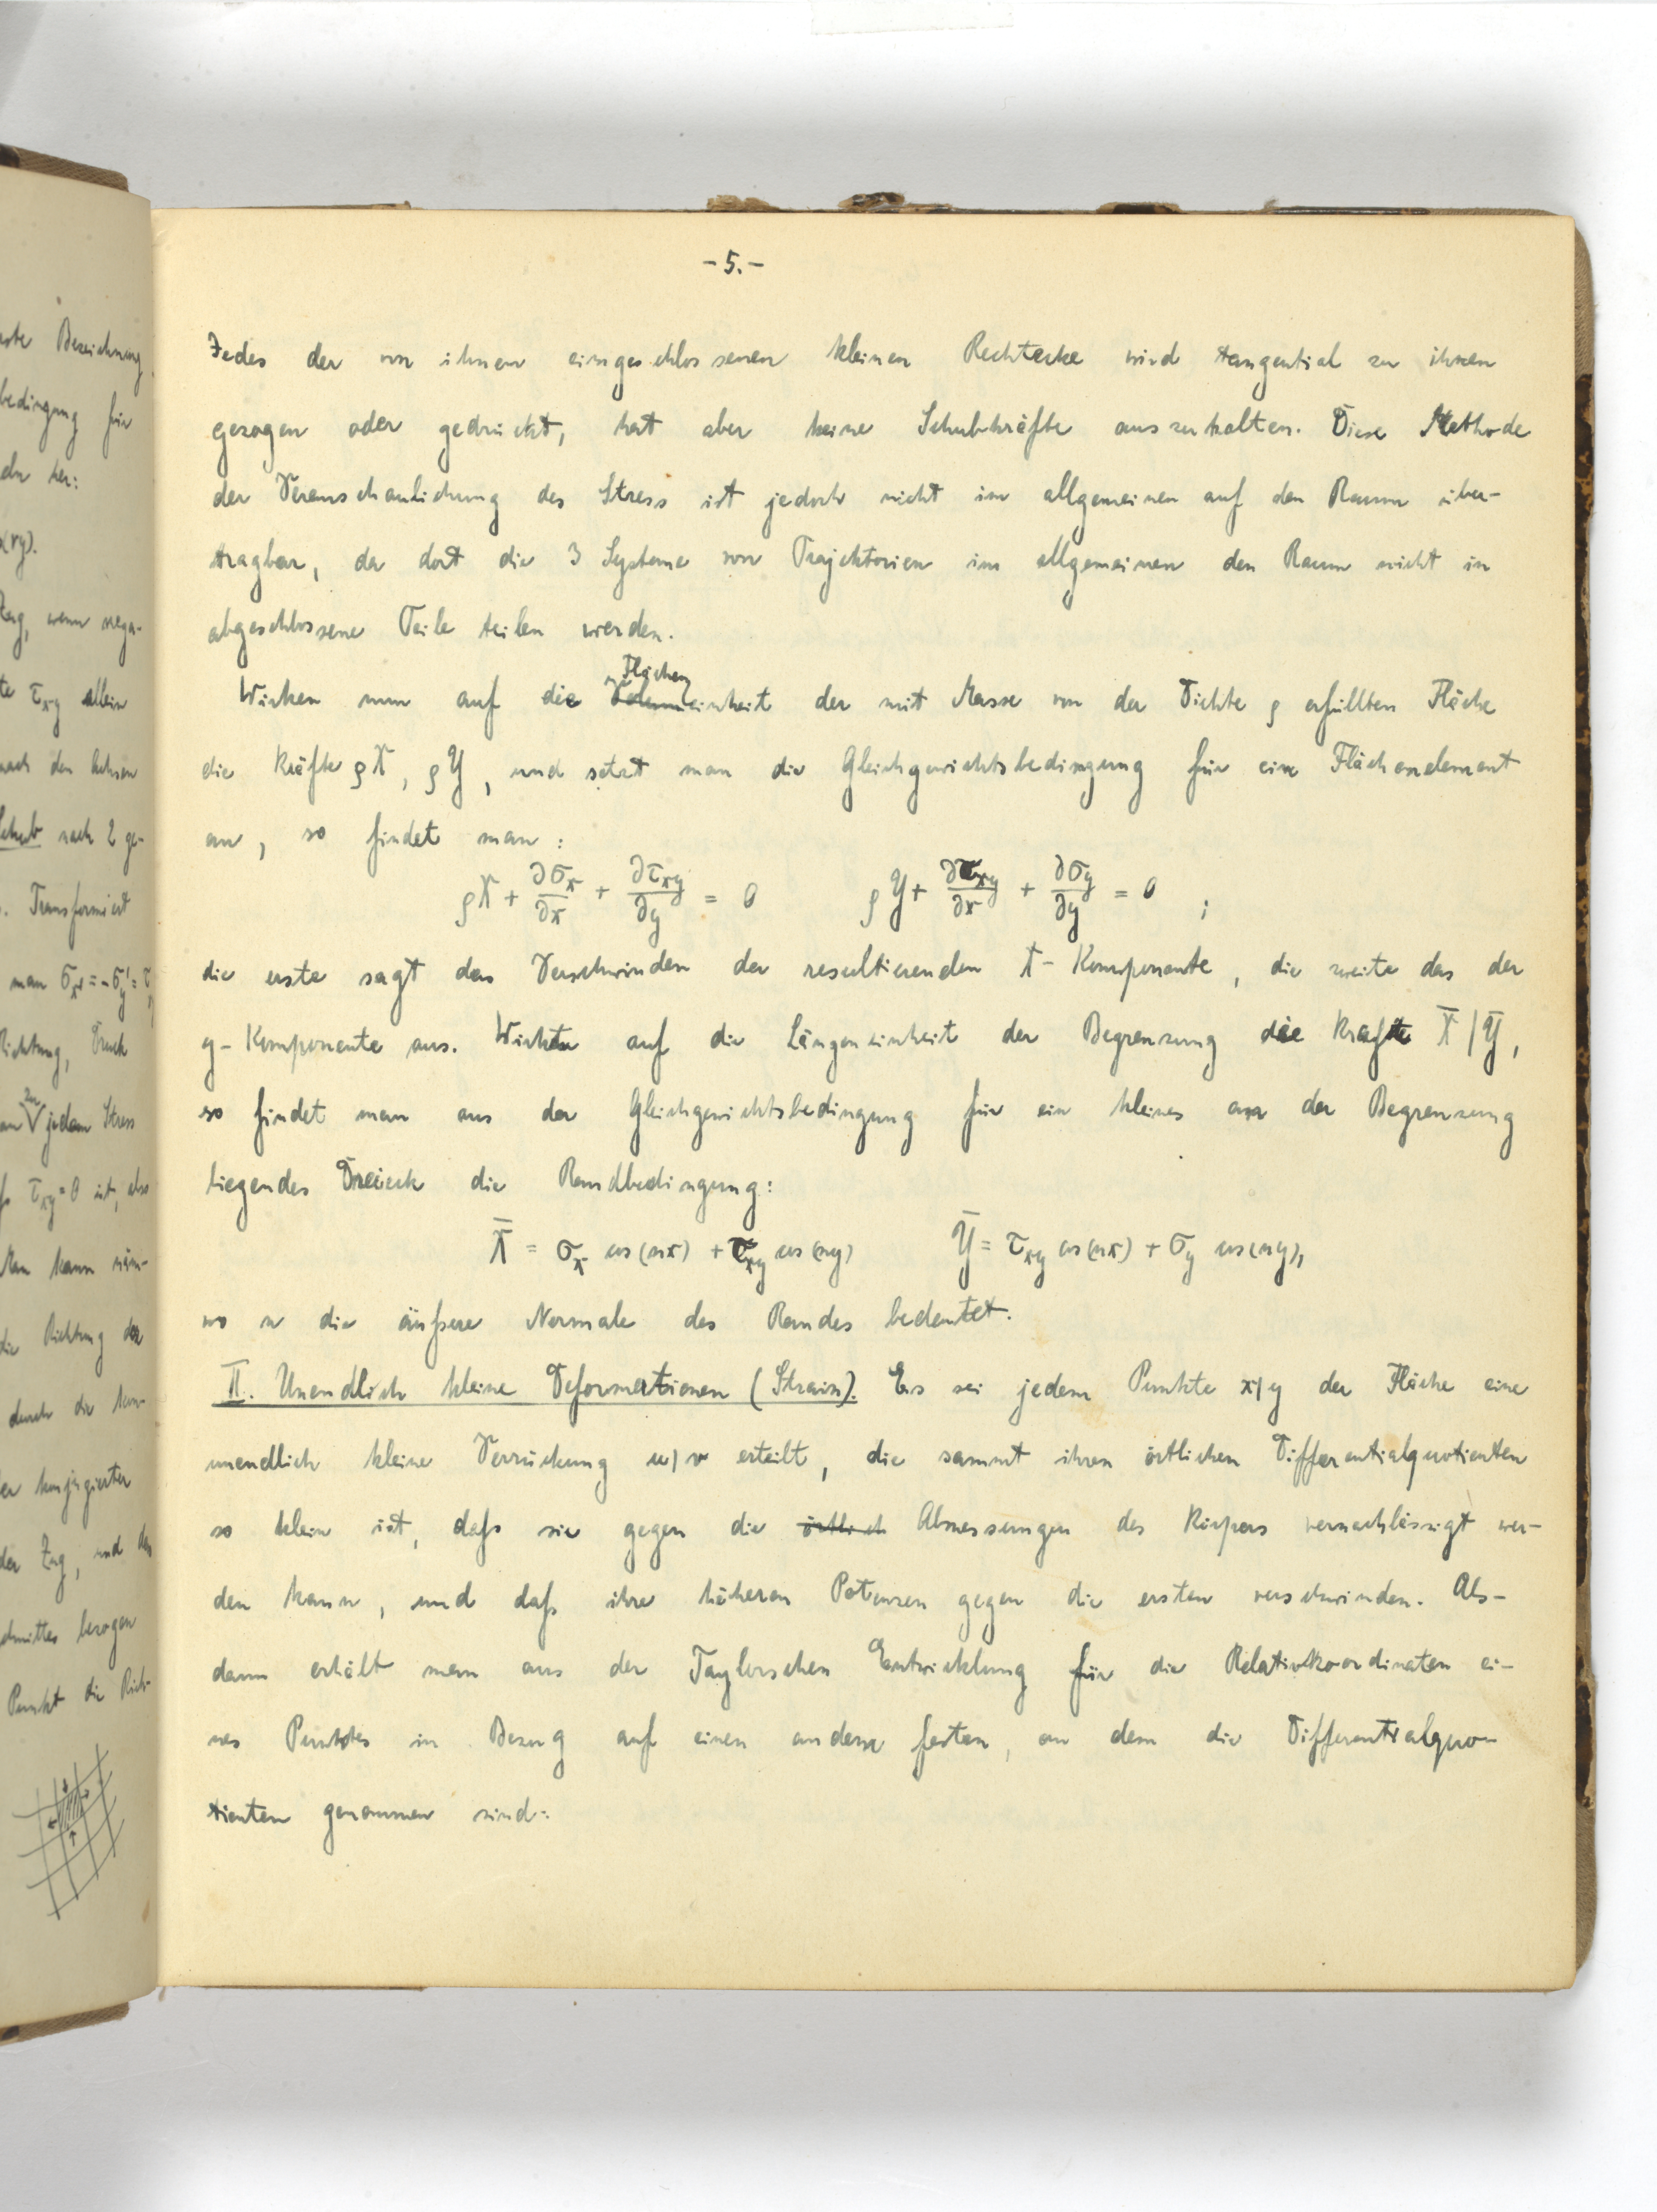 -5.-
Jedes der von ihnen eingeschlossenen kleinen Rechtecke wird tangential zu ihnen
gezogen oder gedrückt, hat aber keine Schubkräfte auszuhalten. Diese Methode
der Veranschaulichung des Stress ist jedoch nicht im allgemeinen auf den Raum über-
tragbar, da dort die 3 Systeme von Trajektorien im allgemeinen den Raum nicht in
abgeschlossene Teile teilen werden.
Flächen
Wirken nun auf die einheit der mit Masse von der Dichte ρ erfüllten Fläche
die Kräfte ρX, ρY, und setzt man die Gleichgewichtsbedingung für ein Flächenelement
an, so findet man:
ρX + ∂σx/∂x + ∂τxy/∂y = 0 ρY + ∂τxy/∂x + ∂σy/∂y = 0 ;
die erste sagt das Verschwinden der resultierenden X-Komponente, die zweite das der
y-Komponente aus. Wirkten auf die Längeneinheit der Begrenzung die Kräfte X̄/Ȳ,
so findet man aus der Gleichgewichtsbedingung für ein kleines an der Begrenzung
liegendes Dreieck die Randbedingung:
X̄ = σx cos(nx) + τxy cos(ny) Ȳ = τxy cos(nx) + σy cos(ny),
wo n die äußere Normale des Randes bedeutet.
II. Unendlich kleine Deformationen (Strain). Es sei jedem Punkte x/y der Fläche eine
unendlich kleine Verrückung u/v erteilt, die sammt ihren örtlichen Differentialquotienten
so klein ist, daß sie gegen die örtlich Abmessungen des Körpers vernachlässigt wer-
den kann, und daß ihre höheren Potenzen gegen die ersten verschwinden. Als-
dann erhält man aus der Taylorschen Entwicklung für die Relativkoordinaten ei-
nes Punktes in Bezug auf einen andern festen, an dem die Differentialquo-
tienten genommen sind: